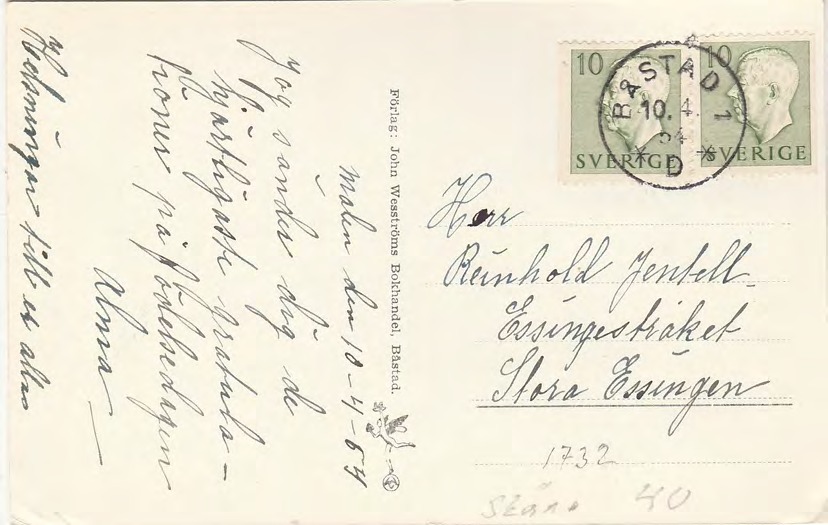 Malen den 10-4-54
Jag sänder dig de
hjärtligaste gratula-
tioner på födelsedagen
Alma
Hälsningar till er alla
Förlag: John Wesströms Bokhandel, Båstad.
10 SVERIGE
10 SVERIGE
BÅSTAD 1
10. 4.
54
D
Herr
Reinhold Jentell
Essingestråket
Stora Essingen
1732
Skåne 40